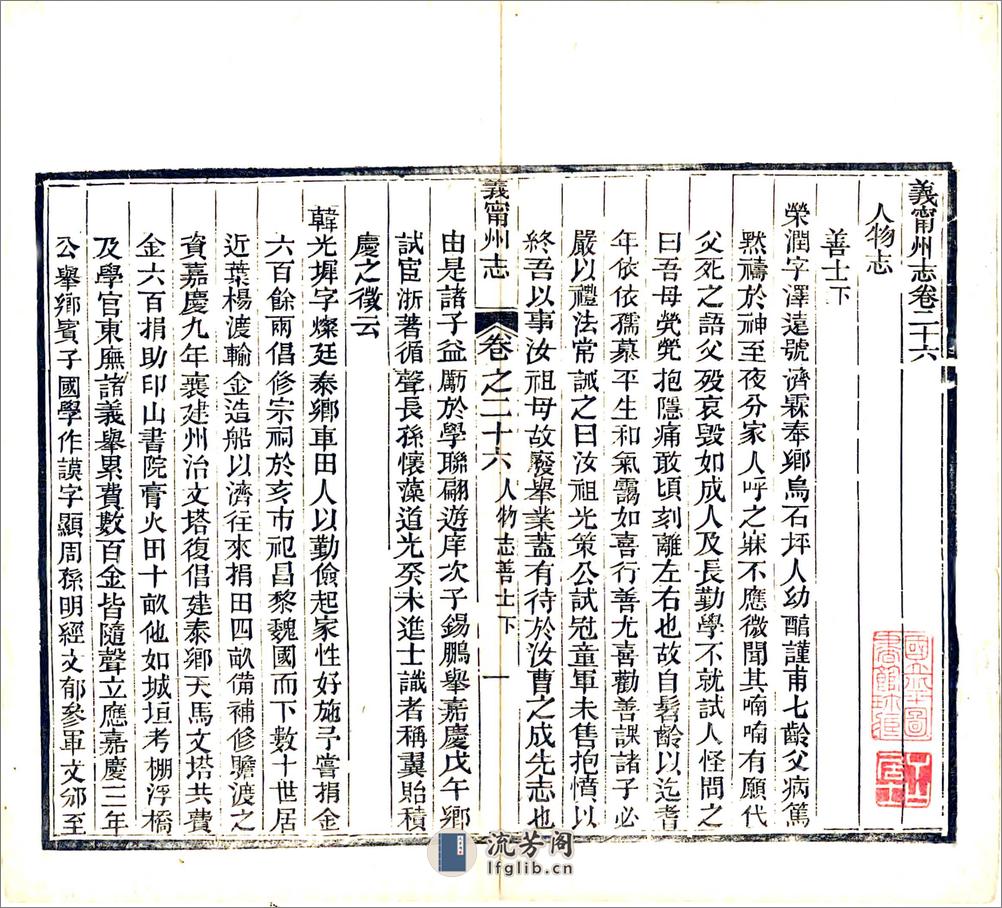 義甯州志卷二十六
人物志
善士下
榮潤字澤遠號濟霖奉鄉烏石坪人幼醕謹甫七齡父病篤
黙禱於神至夜分家人呼之寐不應微聞其喃喃有願代
父死之語父歿哀毀如成人及長勤學不就試人怪問之
曰吾母煢煢抱隱痛敢頃刻離左右也故自髫齡以迄耆
年依依孺慕平生和氣靄如喜行善尤喜勸善課諸子必
嚴以禮法常誡之曰汝祖光策公試冠童軍未售抱憤以
終吾以事汝祖母故廢舉業蓋有待於汝曹之成先志也
義甯州志 卷之二十六 人物志善士下 一
由是諸子益勵於學聯翩遊庠次子錫鵬舉嘉慶戊午鄉
試宦浙著循聲長孫懷藻道光癸未進士識者稱翼貽積
慶之徵云
韓光墀字燦廷泰鄉車田人以勤儉起家性好施予嘗捐金
六百餘兩倡修宗祠於亥市祀昌黎魏國而下數十世居
近葉楊渡輸金造船以濟往來捐田四畝備補修贍渡之
資嘉慶九年襄建州治文塔復倡建泰鄉天馬文塔共費
金六百捐助印山書院膏火田十畝他如城垣考棚浮橋
及學官東廡諸義舉累費數百金皆隨聲立應嘉慶三年
公舉鄉賓子國學作謨字顯周孫明經文郁參軍文邠至
流芳阁
lfglib.cn